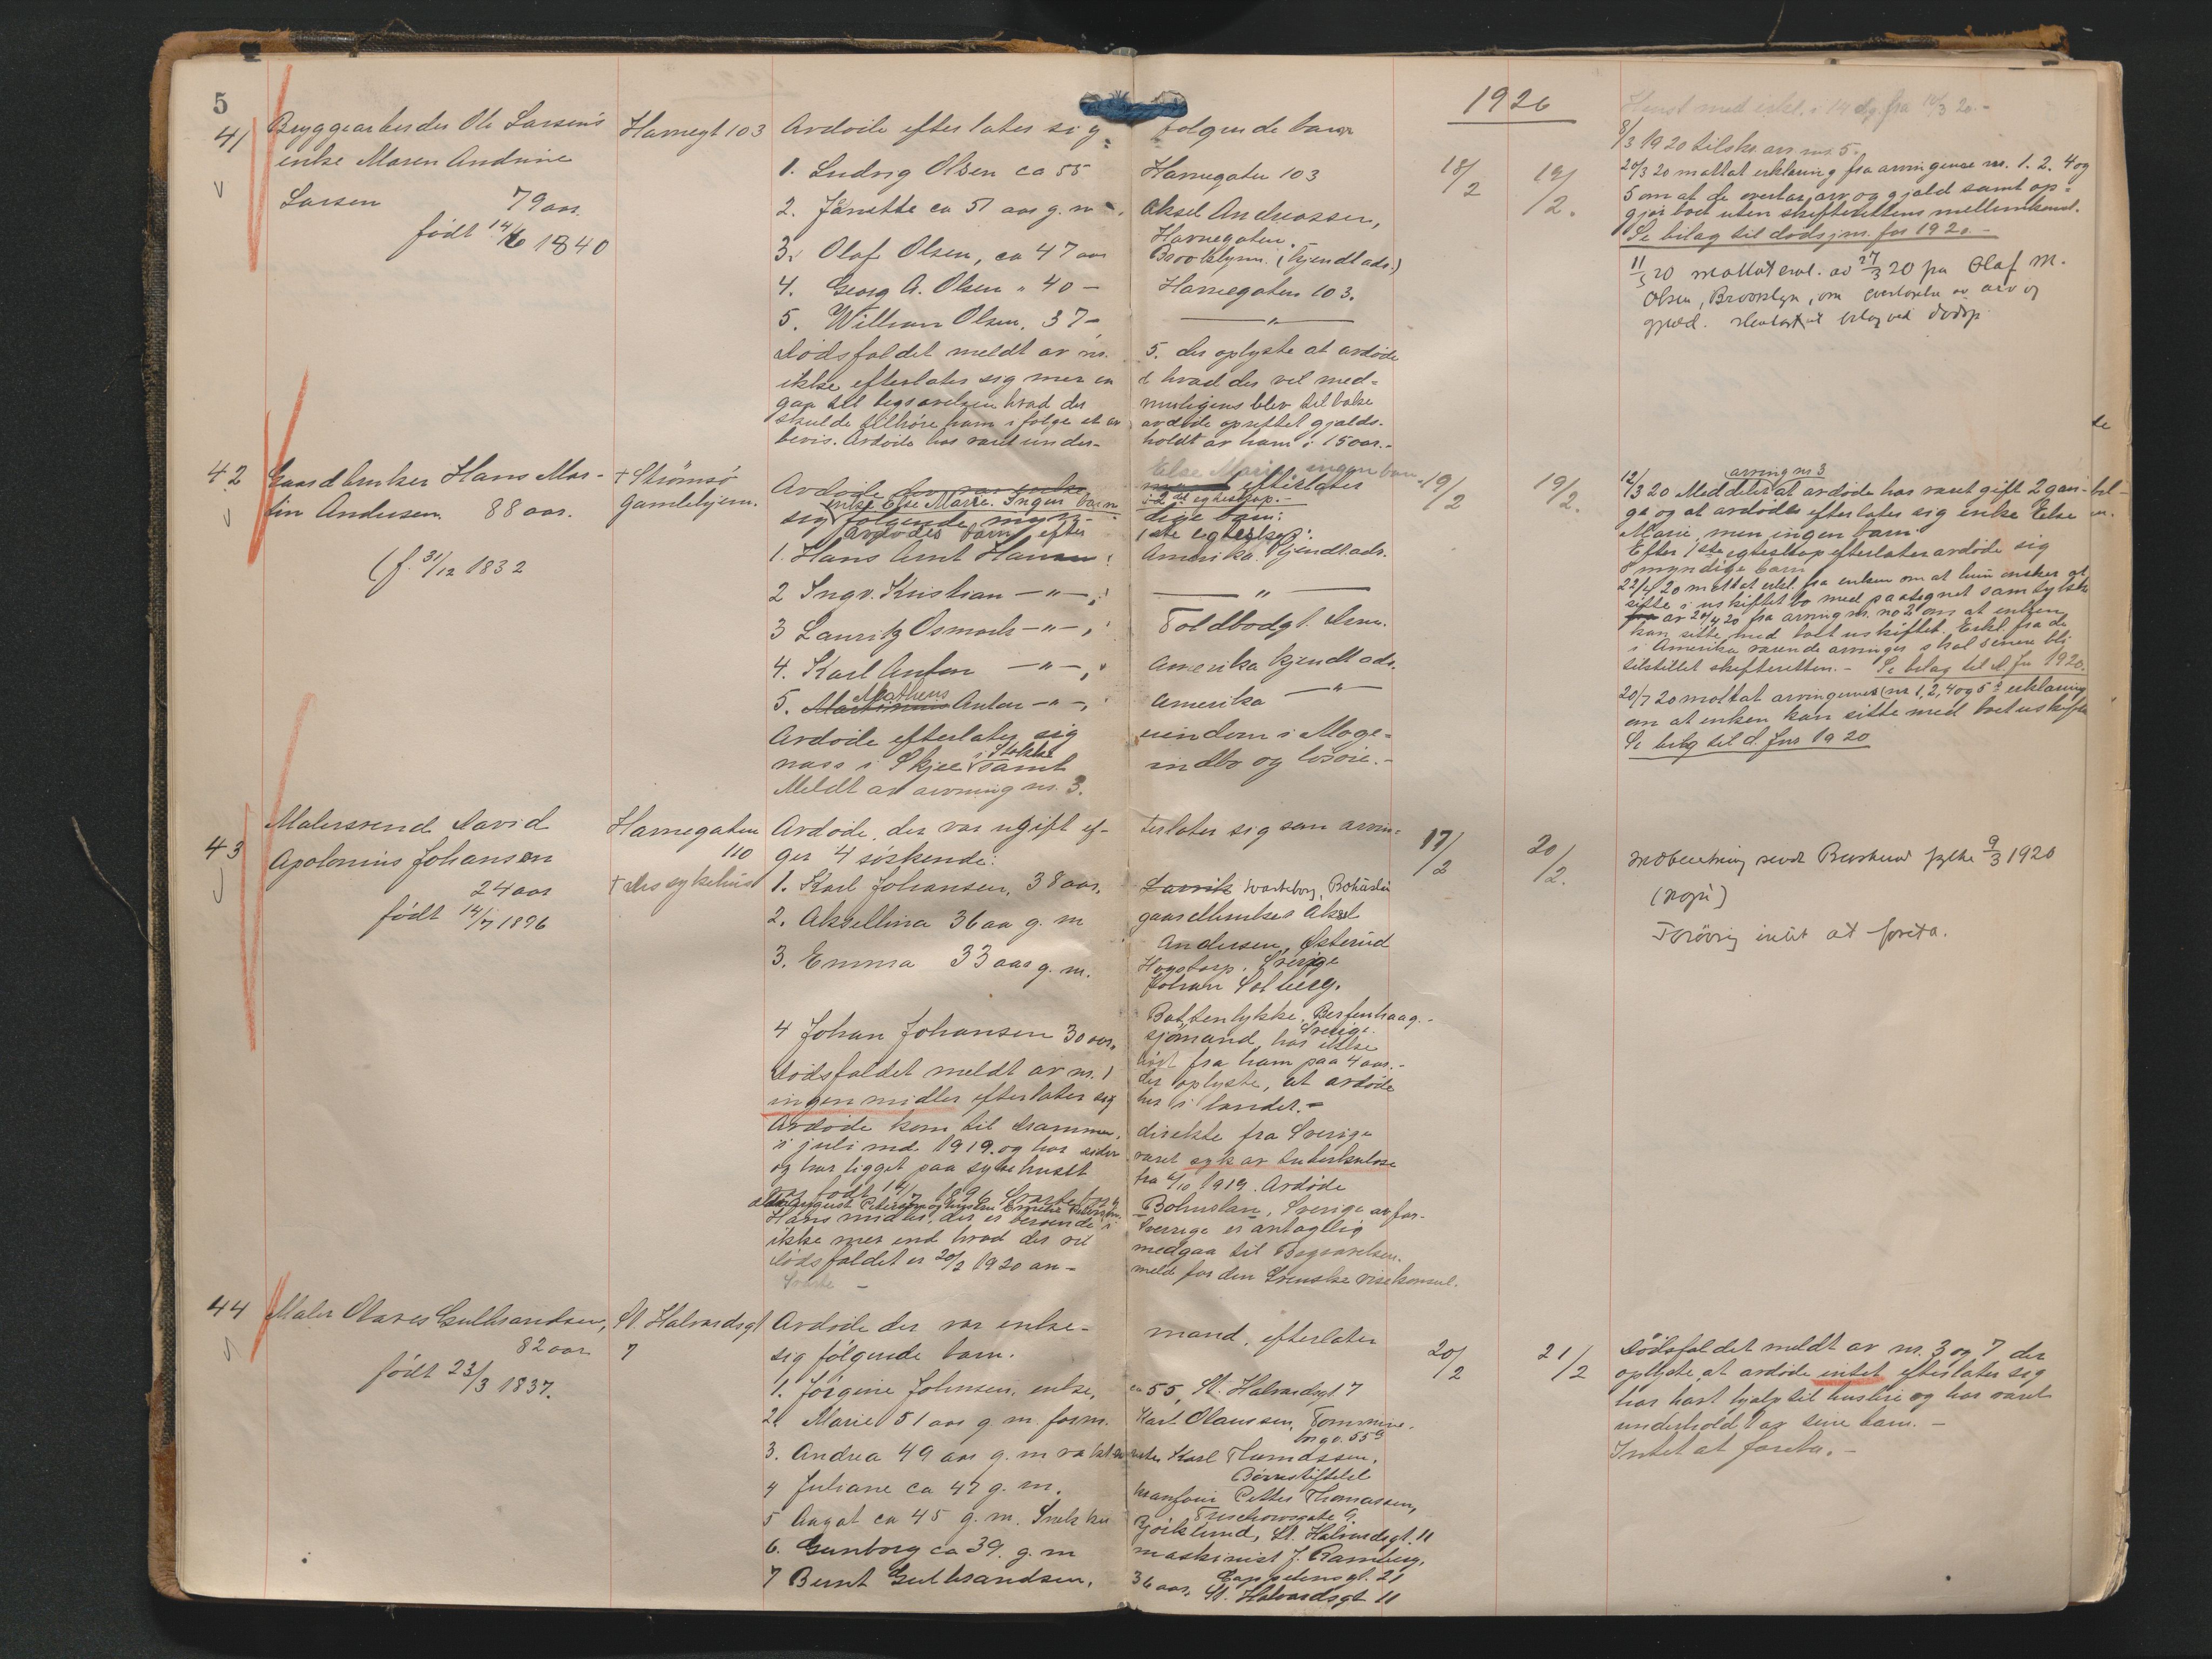 5
1920
41
Bryggearbeider Ole Larsen's
enke Maren Andrine
Larsen 79 aar.
født 14/6 1840
Havnegt 103
Avdøde efterlater sig følgende barn
1. Ludvig Olsen ca 55 Havnegaten 103
2. Janette ca 51 aar g. m. Aksel Andreassen,
Havnegaten.
3. Olaf Olsen, ca 47 aar Brooklynn. (kjendt adr.)
4. Georg A. Olsen " 40 — Havnegaten 103.
5. William Olsen, 37 — — " —
Dødsfaldet meldt av nr. 5. der oplyste at avdøde
ikke efterlater sig mer en d hvad der vil med-
gaa til begravelsen hvad der muligens blev tilbake
skulde tilhøre ham ifølge et av avdøde oprettet gjælds-
bevis. Avdøde har været under- holdt av ham i 15 aar. -
18/2
19/2.
8/3 1920 tilskr. arv. nr. 5.
20/3 20 mottat erklæring fra arvingerne nr. 1. 2. 4 og
5 om at de overtar arv og gjæld samt op-
gjør boet uten skifterettens mellemkomst.
Se bilag til dødsjnr. for 1920 -
11/5 20 mottat erkl. av 27/3 20 fra Olaf M.
Olsen, Brooklyn, om overtagelse av arv og
gjæld.
42
Gaardbruker Hans Mar-
tin Andersen. 88 aar.
(f. 31/12 1832
+ Strømsø
Gamlehjem.
Avdøde der var enke
enke Else Marie. Ingen barn
Else Marie ingen barn
efterlater
i 2det egteskap. -
sig følgende myn- dige barn:
avdødes barn efter 1ste egteskap:
1. Hans Arnt Hansen: Amerika. Kjendt adr.
2 Ingv. Kristian — " — — " —
3 Lauritz Osmark — " — Toldbodgt. Drm.
4. Karl Anton — " — Amerika kjendt adr.
Matheus
5. Martinius Anton — " — Amerika — " —
Avdøde efterlater sig eiendom i Moge-
næss i Skjee i Stokke samt indbo og løsøre. -
Meldt av arving nr. 3.
19/2
19/2.
arving nr 3
12/3 20 Meddeler at avdøde har været gift 2 gan-
ge og at avdøde efterlater sig enke Else
Marie, men ingen barn.
Efter 1ste egteskap efterlater avdøde sig
5 myndige barn
22/4 20 mottat erkl. fra enken om at hun ønsker at
sitte i uskiftet bo med paategnet samtykke
fra av 20/4 20 fra arving nr. no 2 om at enken
kan sitte med boet uskiftet. Erkl. fra de
i Amerika værende arvinger skal senere bli
tilstillet skifteretten. - Se bilag til d. jnr 1920.
20/7 20 mottat arvingernes (nr 1, 2, 4 og 5's erklæring
om at enken kan sitte med boet uskiftet
Se bilag til d. jnr 1920
43
Malersvend David
Apolonius Johansen
24 aar
født 14/7 1896
Havnegaten
110
+ Drs sykehus
Avdøde, der var ugift ef- terlater sig som arvin-
ger 4 søskende:
1. Karl Johansen, 38 aar. Larvik Svarteborg, Bohuslen
2. Aksellina 36 aa g. m gaardbruker Aksel
Andersen, Østerud
3. Emma 33 aar g. m. Hogstorp. Sverige
Johan Solberg,
Sverige.
4 Johan Johansen 30 aar, sjømand, har ikke
hørt fra ham paa 4 aar. -
Dødsfaldet meldt av nr. 1 der oplyste, at avdøde
ingen midler efterlater sig her i landet. -
Avdøde kom til Drammen, direkte fra Sverige
i juli md. 1919. og har siden været syk av tuberkulose
og har ligget paa sykehuset fra 6/10 1919. Avdøde
var født 14/7 1896 Svarteborg Bohuslan, Sverige av for-
ældre August Peterson og hustru Emelie
Hans midler, der er beroende i Sverige er antagelig
ikke mer end hvad der vil medgaa til Begravelsen.
Dødsfaldet er 20/2 1920 an- meldt for den Svenske visekonsul.
17/2
20/2.
Indberetning sendt Buskerud fylke 9/3 1920
(kopi)
Forøvrig intet at foreta.
44
Maler Olaves Gulbrandsen,
82 aar
født 23/3 1837.
St. Halvardsgt
7
Avdøde der var enke- mand, efterlater
sig følgende barn.
1. Jørgine Johnsen, enke, ca 55, St. Halvardsgt 7
2. Marie 51 aar g. m. form. Karl Olaussen, Tomme.
3. Andrea 49 aar g. m Karl Thomassen,
Børnestiftelse
4 Juliane ca 47 g. m. Petter Thomassen,
5 Aagot ca 45 g. m. Snekker Bjørklund, St. Halvardsgt. 11
6. Gunborg ca 39. g. m maskinist J. Ramberg,
Cappelensgt. 21
7 Bernt Gulbrandsen, 36 aar, St. Halvardsgt 11
20/2
21/2
Dødsfaldet meldt av nr. 3 og 7 der
oplyste at avdøde intet efterlater sig
har hat hjælp til husleie og har været
underholdt av sine barn. -
Intet at foreta. -